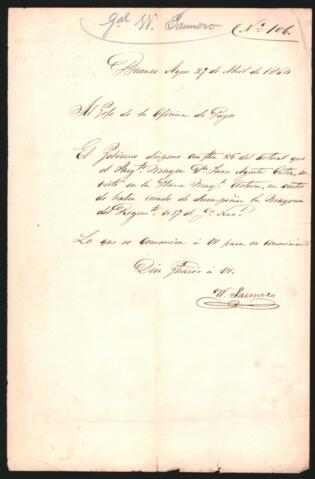 Gal W. Paunero
(No. 106.
Buenos Ayres 27 de Abril de 1864
Al Gefe de la Oficina de Pagos
El Gobierno dispone con fha 25 del actual que
el Sargto. Mayor Dn. Juan Agustin
en la Plana Mayr. Activa, en
haber cesado de desempeñar la Mayoria
del Regimto. No. 17 de Gs. Ns.
Lo que se comunica á V. para su conocimiento
Dios Guarde á V.
W. Paunero